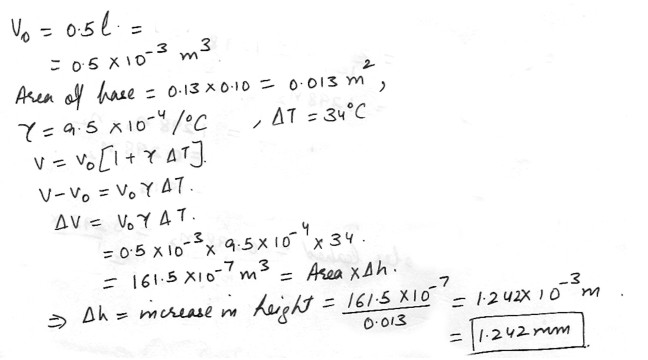 V₀ = 0.5 l. =
= 0.5 × 10⁻³ m³
Area of base = 0.13 × 0.10 = 0.013 m²,
γ = 9.5 × 10⁻⁴ /°C , ΔT = 34°C
V = V₀ [1 + γ ΔT].
V - V₀ = V₀ γ ΔT.
ΔV = V₀ γ ΔT.
= 0.5 × 10⁻³ × 9.5 × 10⁻⁴ × 34.
= 161.5 × 10⁻⁷ m³ = Area × Δh.
⇒ Δh = increase in height = 161.5 × 10⁻⁷ / 0.013 = 1.242 × 10⁻³ m.
= 1.242 mm.